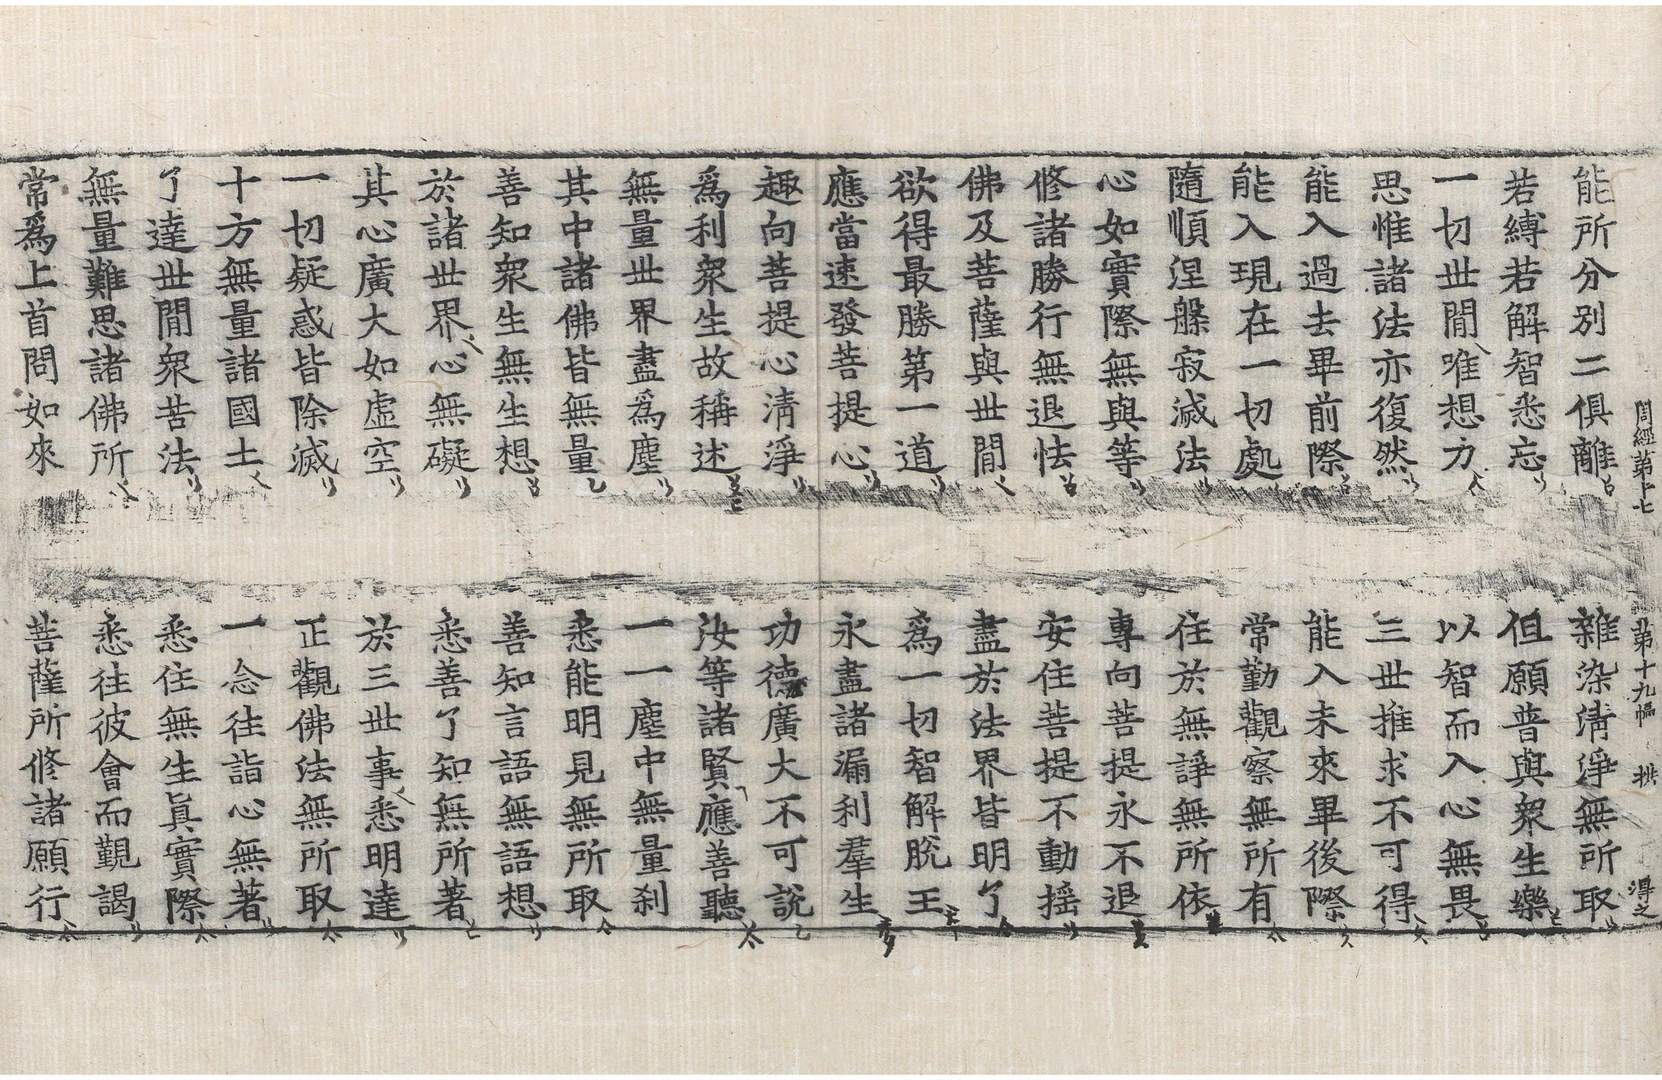 周經第十七 第十九幅 拱 得之
能所分別二俱離 雜染淸淨無所取
若縛若解智悉忘 但願普與衆生樂
一切世間唯想力 以智而入心無畏
思惟諸法亦復然 三世推求不可得
能入過去畢前際 能入未來畢後際
能入現在一切處 常勤觀察無所有
隨順涅槃寂滅法 住於無諍無所依
心如實際無與等 專向菩提永不退
修諸勝行無退怯 安住菩提不動搖
佛及菩薩與世間 盡於法界皆明了
欲得最勝第一道 爲一切智解脫王
應當速發菩提心 永盡諸漏利羣生
趣向菩提心淸淨 功德廣大不可說
爲利衆生故稱述 汝等諸賢應善聽
無量世界盡爲塵 一一塵中無量刹
其中諸佛皆無量 悉能明見無所取
善知衆生無生想 善知言語無語想
於諸世界心無礙 悉善了知無所著
其心廣大如虛空 於三世事悉明達
一切疑惑皆除滅 正觀佛法無所取
十方無量諸國土 一念往詣心無著
了達世間衆苦法 悉住無生眞實際
無量難思諸佛所 悉往彼會而覲謁
常爲上首問如來 菩薩所修諸願行